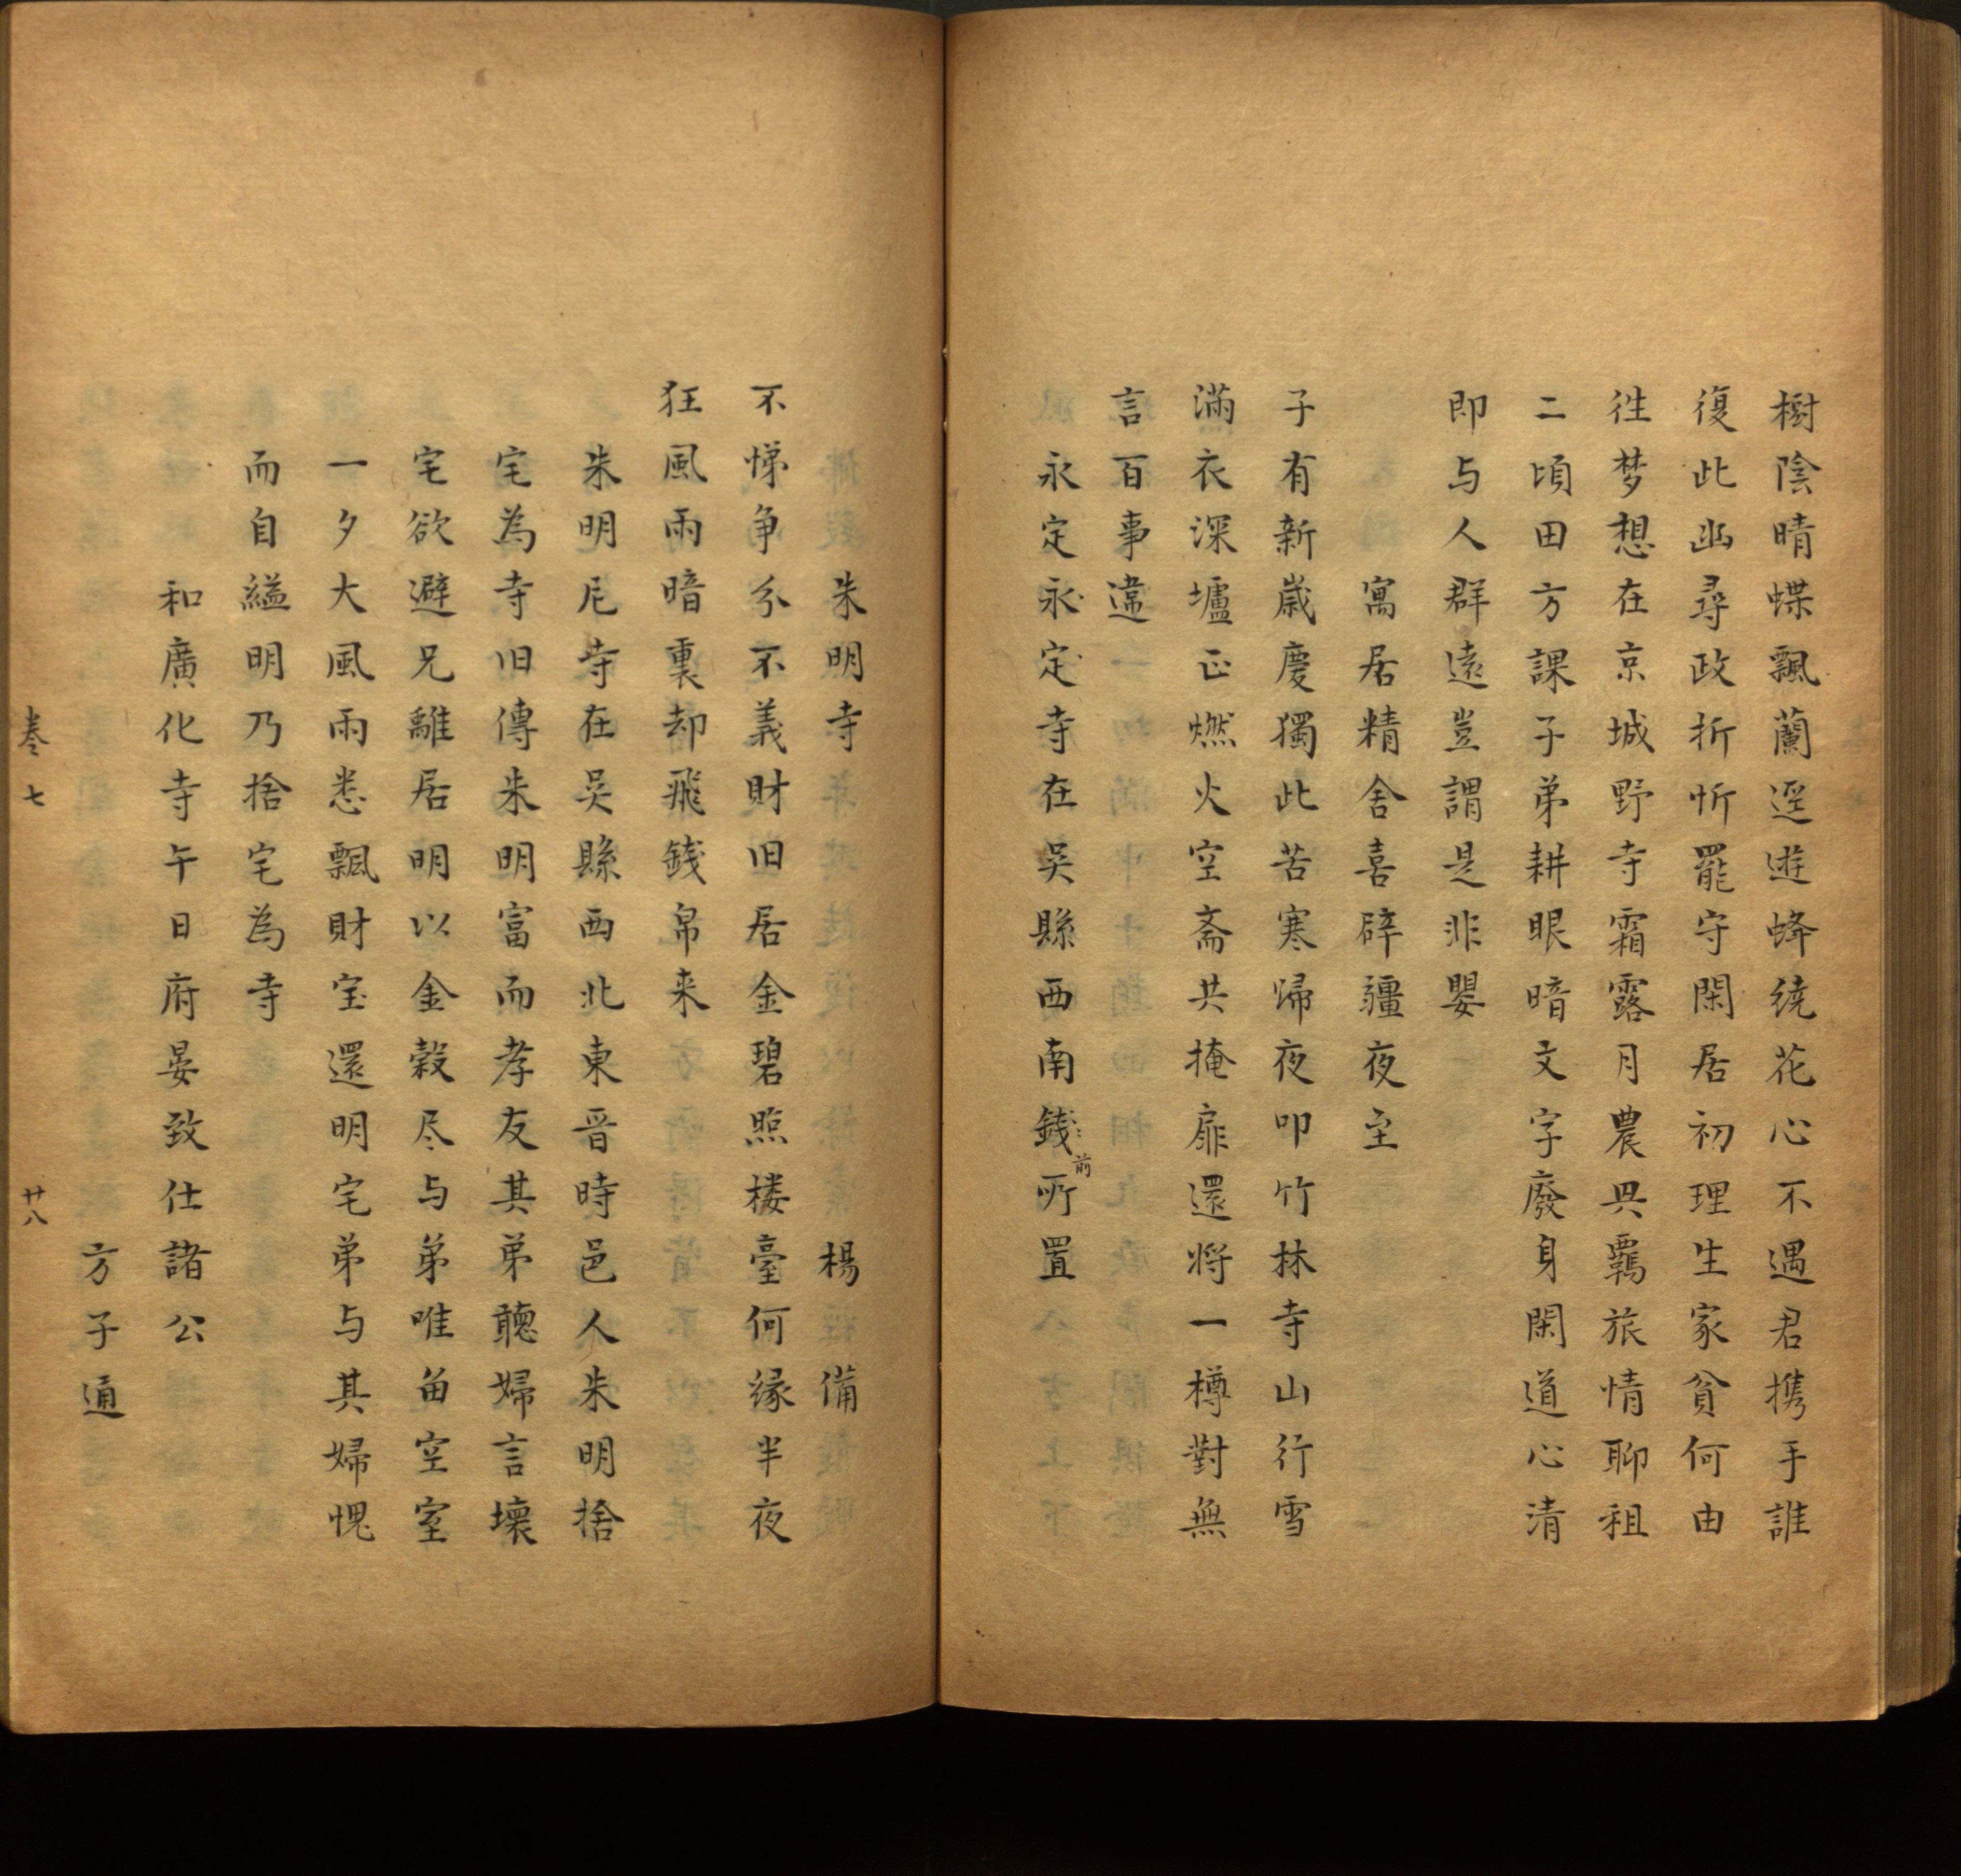 樹陰晴蝶飄蘭逕遊蜂繞花心不遇君携手誰
復此幽尋政折忻罷守閑居初理生家貧何由
徃梦想在京城野寺霜露月農興羈旅情聊租
二頃田方課子弟耕眼暗文字廢身閑道心清
即与人群遠豈謂是非嬰
寓居精舍喜辟疆夜至
子有新歲慶獨此苦寒歸夜叩竹林寺山行雪
滿衣深壚正燃火空斋共掩扉還将一樽對無
言百事違
永定永定寺在吳縣西南錢前所置
朱明寺 楊備
不悌争分不義財旧居金碧照楼臺何緣半夜
狂風雨暗裏却飛錢帛来
朱明尼寺在吳縣西北東晋時邑人朱明捨
宅為寺旧傳朱明富而孝友其弟聽婦言壞
宅欲避兄離居明以金榖尽与弟唯留空室
一夕大風雨悉飄財宝還明宅弟与其婦愧
而自縊明乃捨宅為寺
和廣化寺午日府晏致仕諸公
方子通
卷七 廿八